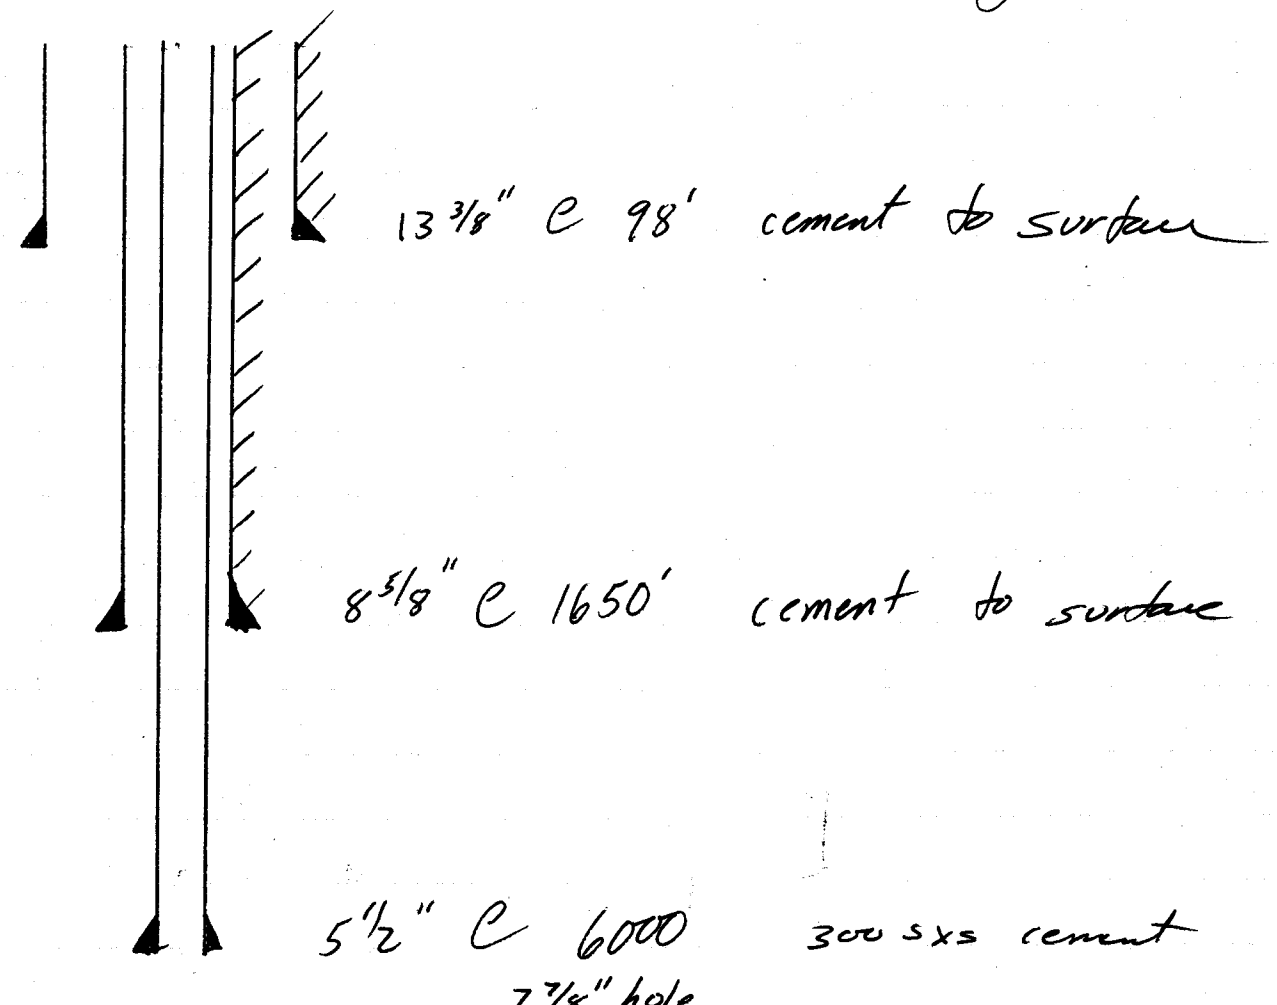 13 3/8" @ 98' cement to surface
8 5/8" @ 1650' cement to surface
5 1/2" @ 6000 300 sxs cement
7 7/8" hole